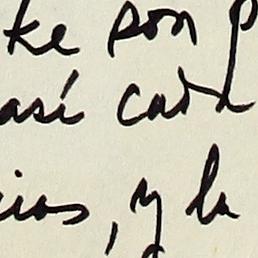 ke son p
así cada
cias, y la